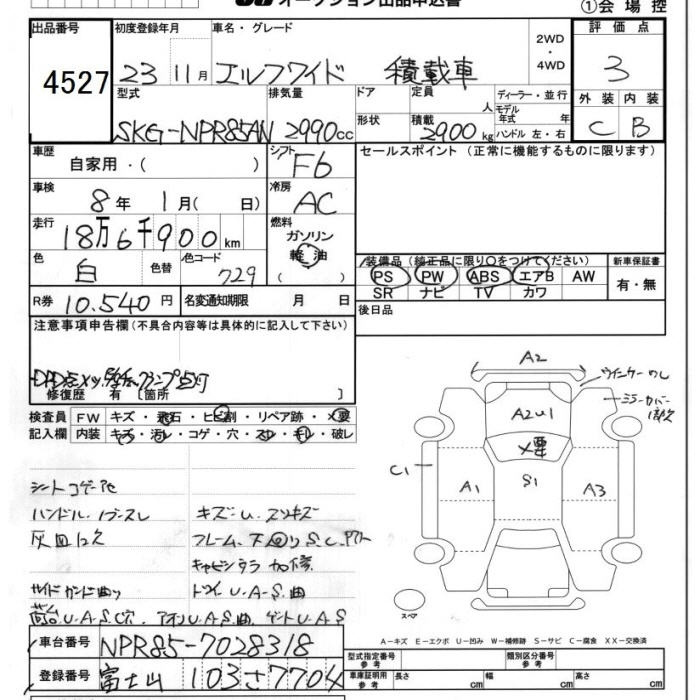 オークション出品申込書
①会場控
出品番号
4527
初度登録年月
23 11月
車名・グレード
エルフワイド 積載車
2WD
・
4WD
評価点
3
外装 内装
C B
型式
SKG-NPR85AN
排気量
2990cc
ドア
形状
定員
人
積載
2900kg
ディーラー・並行
モデル
年式 年
ハンドル 左・右
車歴
自家用・( )
シフト
F6
セールスポイント (正常に機能するものに限ります)
車検
8年 1月( 日)
冷房
AC
走行
18万6千900km
燃料
ガソリン
軽油
( )
色
白
色替
色コード
729
装備品(純正品に限り○をつけてください)
PS PW ABS エアB AW
SR ナビ TV カワ
新車保証書
有・無
R券 10.540円
名変通知期限 月 日
後日品
注意事項申告欄(不具合内容等は具体的に記入して下さい)
修復歴 有 [箇所 ]
検査員
記入欄
FW キズ・飛石・ヒビ割・リペア跡・メ要
内装 キズ・汚レ・コゲ・穴・スレ・キレ・破レ
ハンドル・ノブスレ
キズ・U・スリキズ
フレーム、下回りS.C.
A2
A2U1
メ要
S1
A1
A3
C1
スペア
A−キズ E−エクボ U−凹み W−補修跡 S−サビ C−腐食 XX−交換済
車台番号 NPR85-7028318
登録番号 富士山 103さ7704
型式指定番号
参考
類別区分番号
参考
車庫証明用
参考
長さ cm 幅 cm 高さ cm